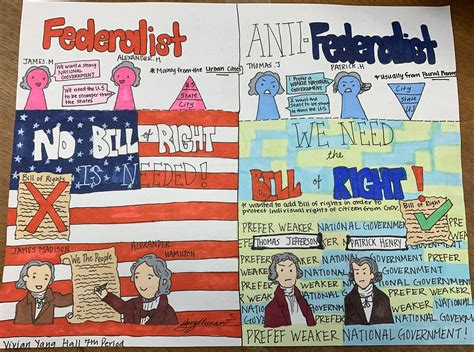 Federalist
JAMES.M
ALEXANDER.H
We want a strong
NATIONAL
GOVERNMENT
We need the U.S
to be stronger than
the States!
* Mainly from the Urban Cities
U.S
State
City
NO BILL of RIGHT
IS NEEDED!
Bill of Rights
JAMES MADISON
We The People
ALEXANDER
HAMILTON
Vivian Yang Hall 7th Period
ANTI-Federalist
THOMAS.J
PATRICK.H
Prefer a
WEAKER NATIONAL
GOVERNMENT
I want the
State to be stronger
than the U.S
* Usually from Rural
City
State
U.S
WE NEED
the
BILL of RIGHT!
* wanted to add Bill of rights in order to
protect individual rights of citizen from Gov.
Bill of Right
PREFER WEAKER NATIONAL GOVERNMENT!
THOMAS JEFFERSON
PATRICK HENRY
PREFER WEAKER
NATIONAL GOVERNMENT!
PREFER
WEAKER
NATIONAL
GOVERNMENT!
PREFER WEAKER NATIONAL GOVERNMENT!